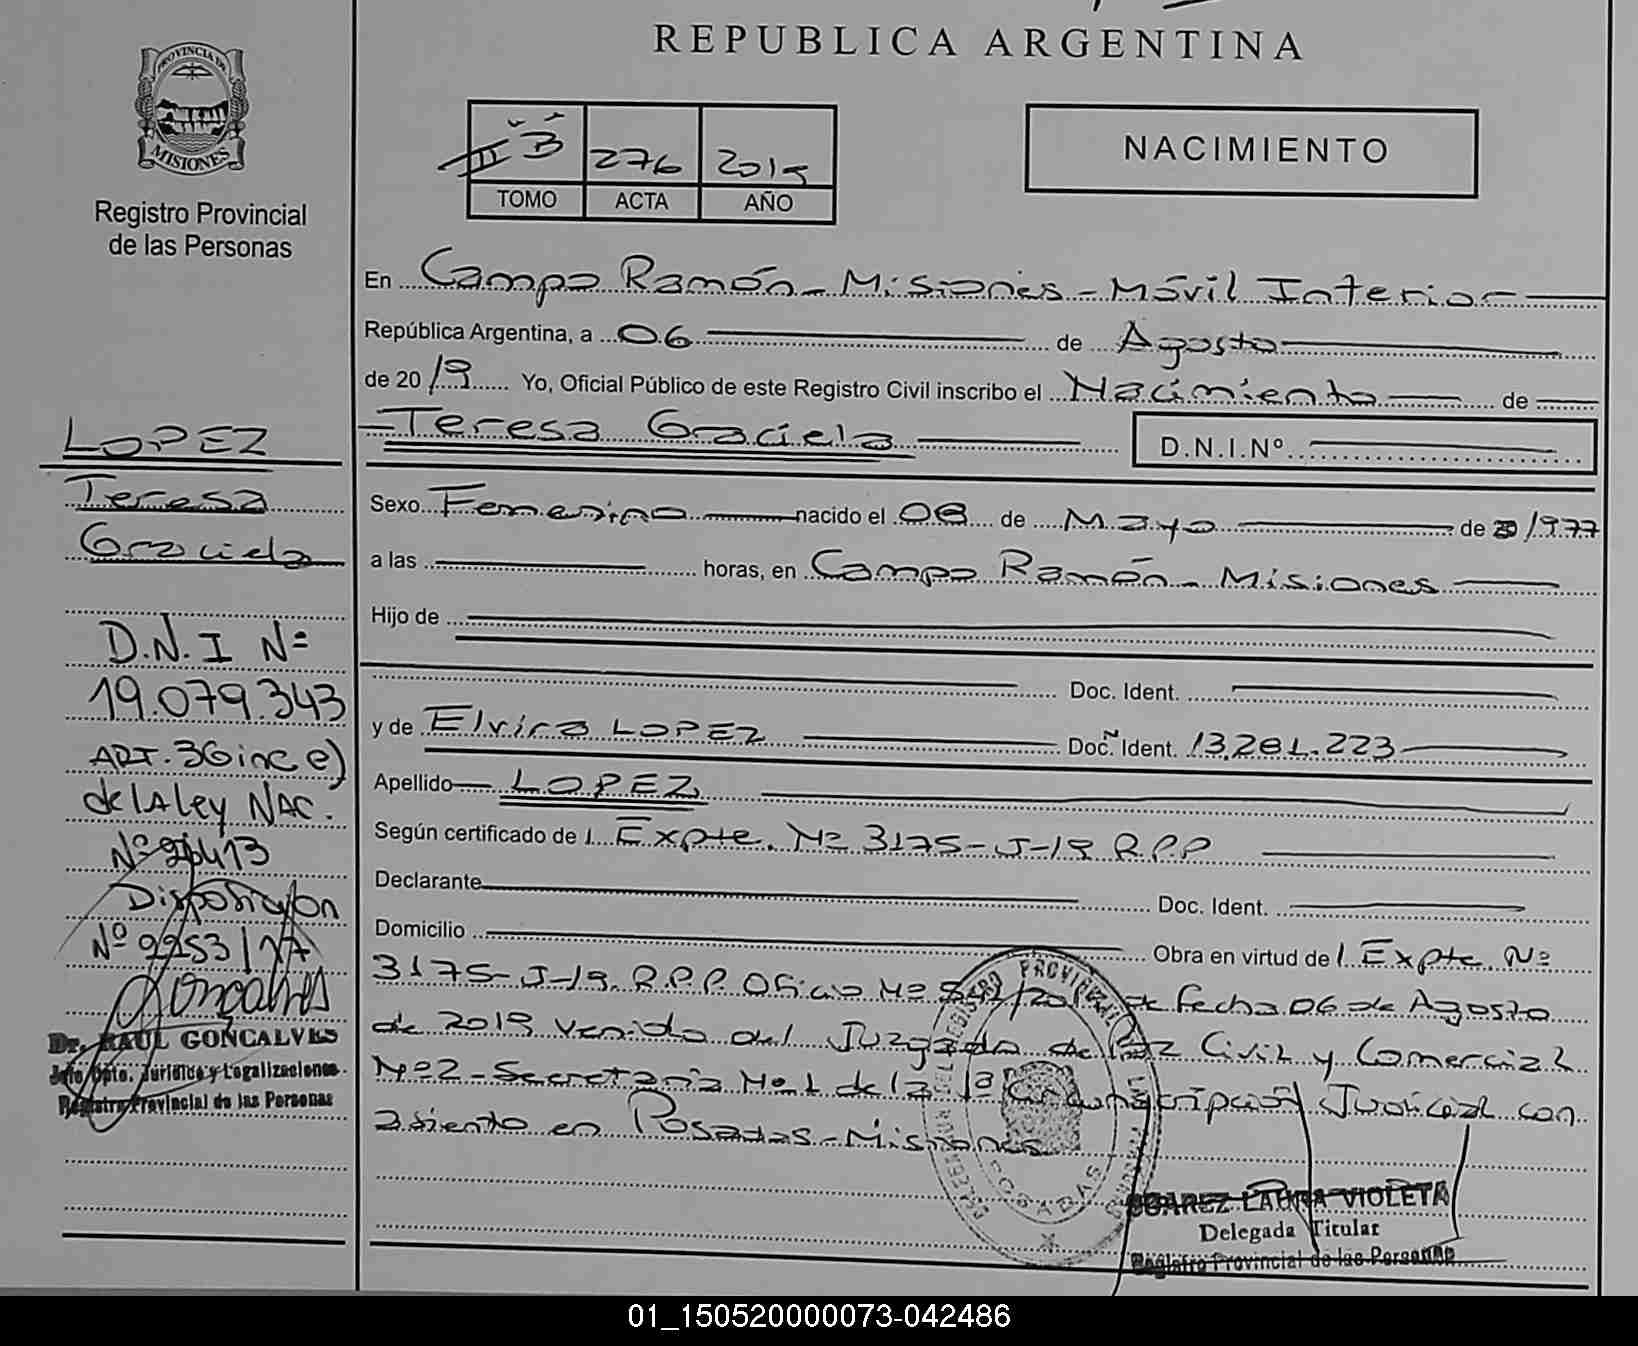 REPUBLICA ARGENTINA
PROVINCIA DE
MISIONES
Registro Provincial
de las Personas
III B 276 2019
TOMO ACTA AÑO
NACIMIENTO
En Campo Ramón - Misiones - Móvil Interior
República Argentina, a 06 de Agosto
de 2019 Yo, Oficial Público de este Registro Civil inscribo el Nacimiento de
Teresa Graciela D.N.I.Nº
Sexo Femenino nacido el 08 de Mayo de 1977
a las horas, en Campo Ramón - Misiones
Hijo de
Doc. Ident.
y de Elvira LOPEZ Doc. Ident. 13.281.223
Apellido LOPEZ
Según certificado de Expte. Nº 3175-J-19 R.P.P
Declarante Doc. Ident.
Domicilio Obra en virtud de Expte. Nº
3175-J-19. R.P.P. Oficio Nº de fecha 06 de Agosto
de 2019 venido del Juzgado de Paz Civil y Comercial
Nº 2 - Secretaria Nº 1 de la 1ª Circunscripción Judicial con
asiento en Posadas - Misiones
SUAREZ LAURA VIOLETA
Delegada Titular
Registro Provincial de las Personas
LOPEZ
Teresa
Graciela
D.N.I Nº
19.079.343
ART. 36 inc e)
de lA ley NAC.
Nº 26413
Disposición
Nº 2253/17
Goncalves
Dr. RAUL GONCALVES
Jefe Dpto. Jurídico y Legalizaciones
Registro Provincial de las Personas
POSADAS
01_150520000073-042486